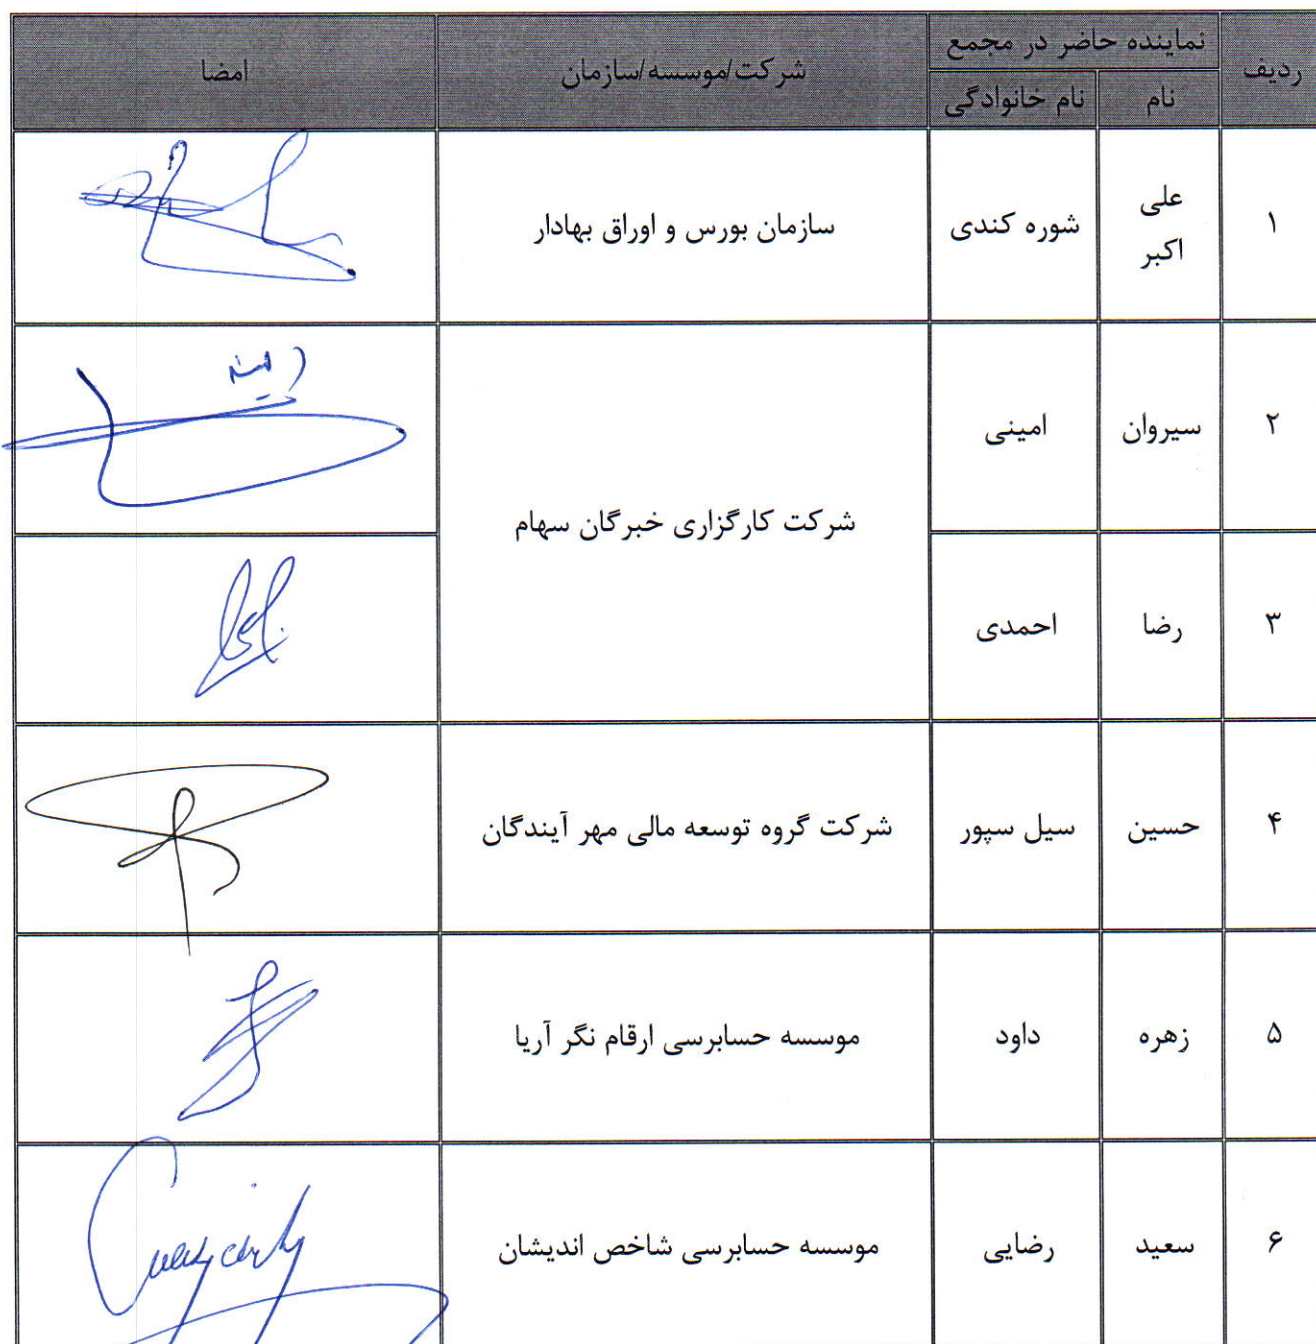 ردیف
نماینده حاضر در مجمع
نام
نام خانوادگی
شرکت/موسسه/سازمان
امضا
۱
علی
اکبر
شوره کندی
سازمان بورس و اوراق بهادار
۲
سیروان
امینی
شرکت کارگزاری خبرگان سهام
۳
رضا
احمدی
۴
حسین
سیل سپور
شرکت گروه توسعه مالی مهر آیندگان
۵
زهره
داود
موسسه حسابرسی ارقام نگر آریا
۶
سعید
رضایی
موسسه حسابرسی شاخص اندیشان